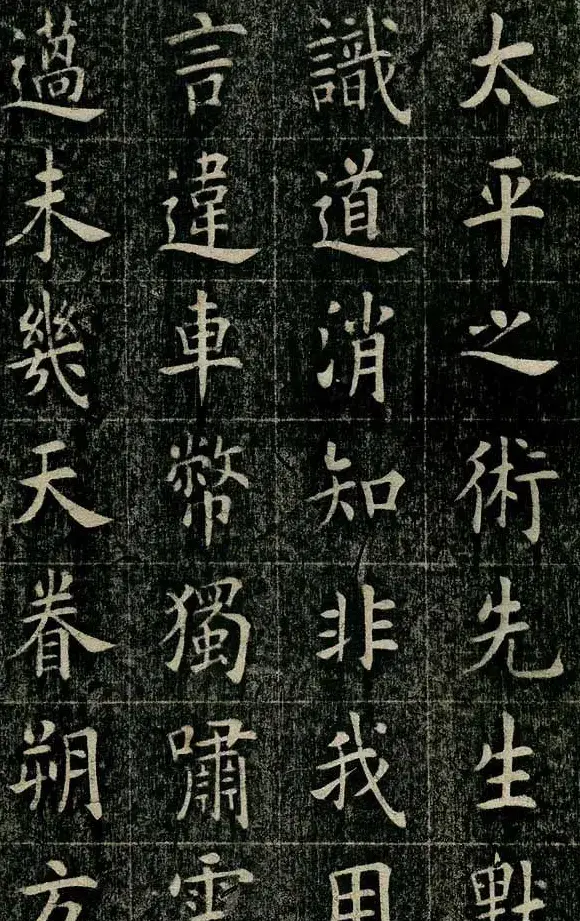 太平之術先生默
識道消知非我用
言違車幣獨嘯雲
薖未幾天眷朔方